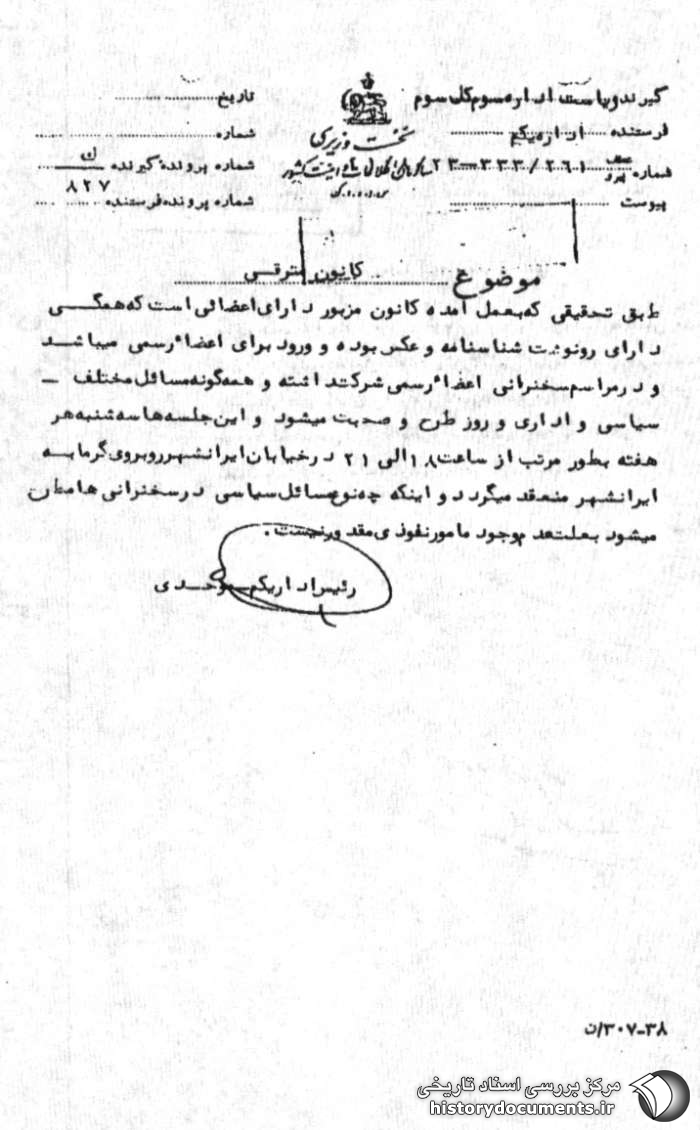 گیرنده ریاست اداره سوم کل سوم
فرستنده اداره یکم
شماره ۲۳-۳۳۳/۲۶۱
پیوست
نخست وزیری
سازمان اطلاعات و امنیت کشور
تاریخ
شماره
شماره پرونده گیرنده
شماره پرونده فرستنده ۸۲۷
موضوع کانون مترقی
طبق تحقیقی که بعمل آمده کانون مزبور دارای اعضائی است که همگی
دارای رونوشت شناسنامه و عکس بوده و ورود برای اعضاء رسمی میباشد
و در مراسم سخنرانی اعضاء رسمی شرکت داشته و همه گونه مسائل مختلف –
سیاسی و اداری و روز طرح و صحبت میشود و این جلسه ها سه شنبه هر
هفته بطور مرتب از ساعت ۱۸ الی ۲۱ در خیابان ایرانشهر روبروی گرمابه
ایرانشهر منعقد میگردد و اینکه چه نوع مسائل سیاسی در سخنرانی ها مطرح
میشود بعلت عدم وجود مامور نفوذی مقدور نیست.
رئیس اداره یکم موحدی
۳۰۷-۳۸/ن
مرکز بررسی اسناد تاریخی
historydocuments.ir